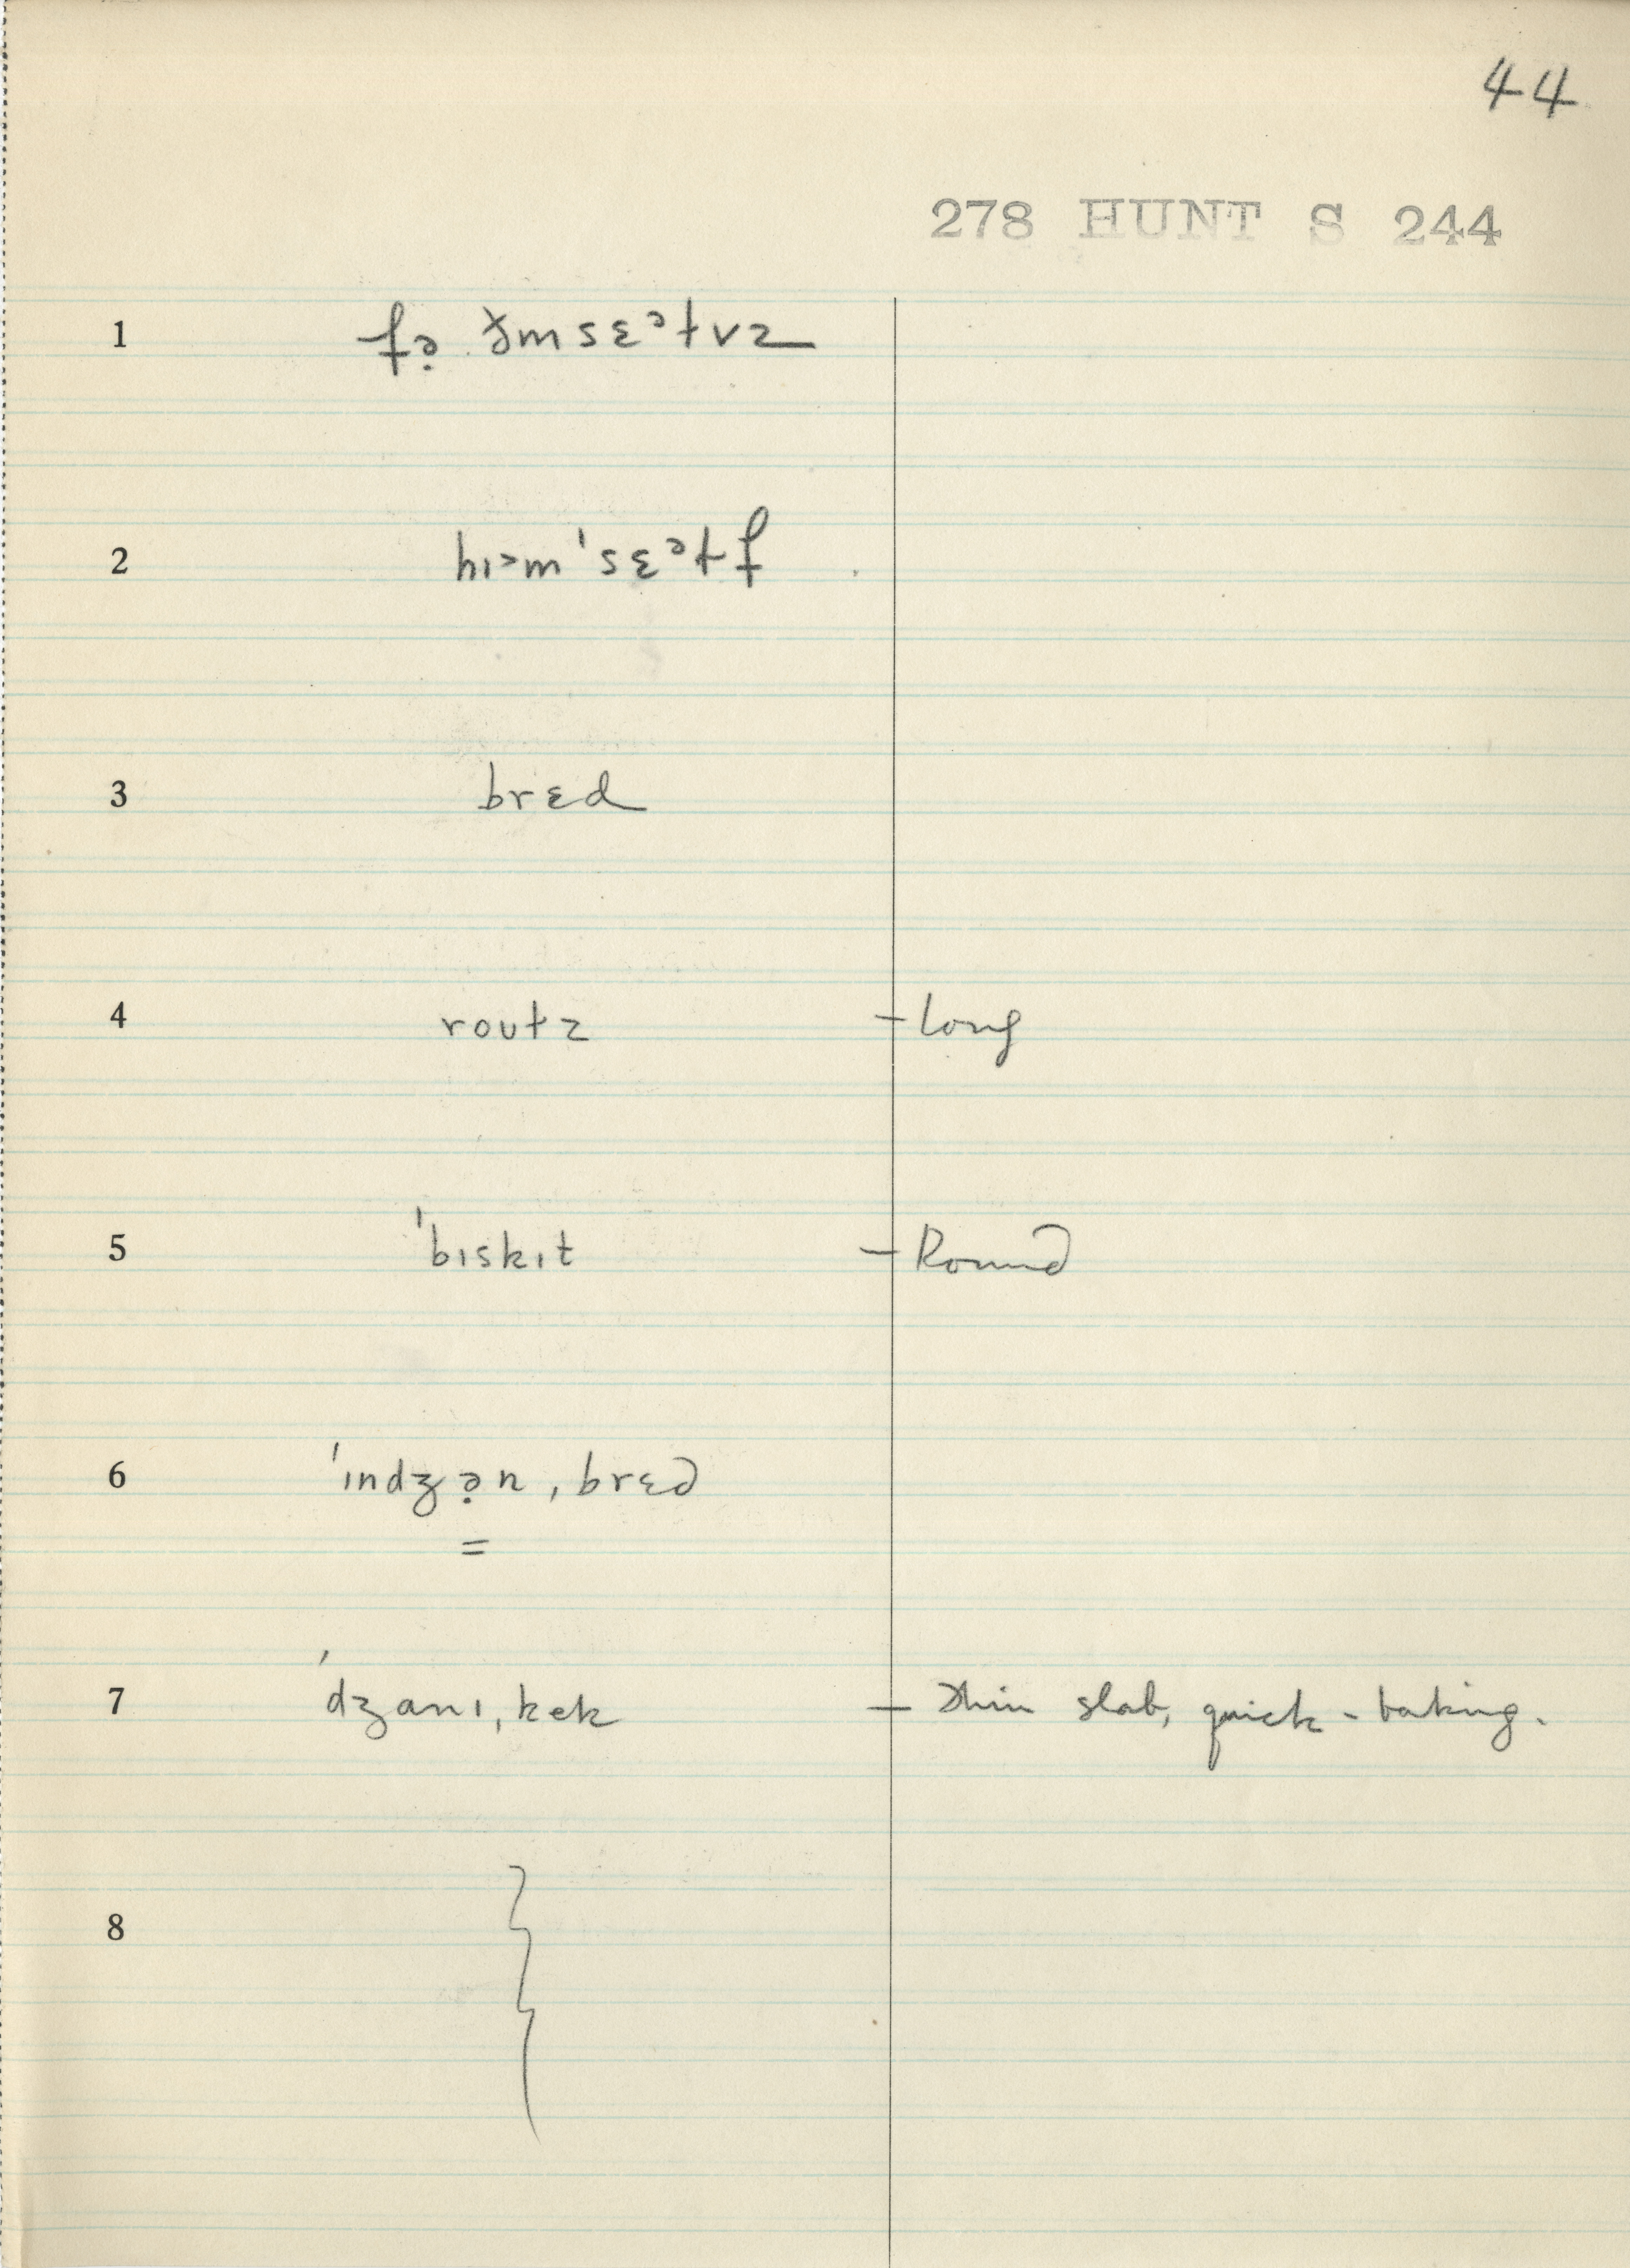 44
278 HUNT S 244
1 fə̣ ðm sɛᵊtvz
2 hɪ>m'sɛᵊtf
3 brɛd
4 routz – Long
5 'bɪskɪt – Round
6 'ɪndʒə̣n, brɛd
=
7 'dʒanɪ, kek – Thin slab, quick-baking.
8